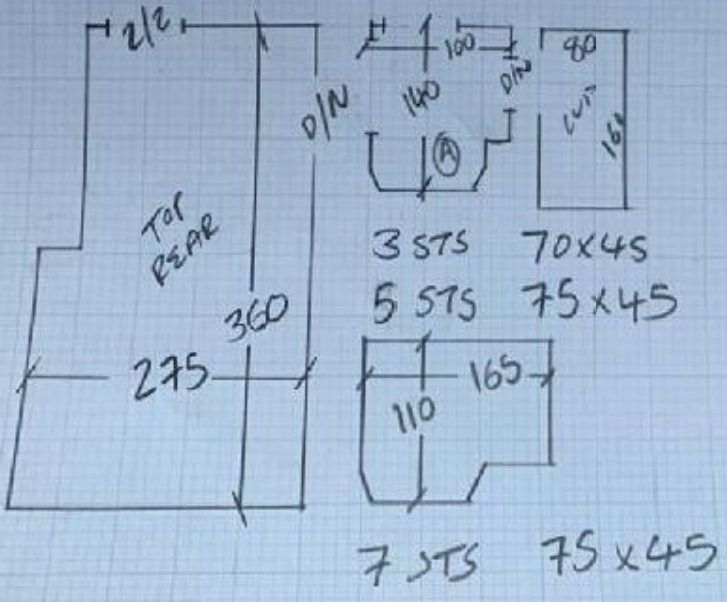 2/2
D/N
TOP
REAR
360
275
100
140
D/N
A
80
160
3 STS 70x45
5 STS 75x45
165
110
7 STS 75x45